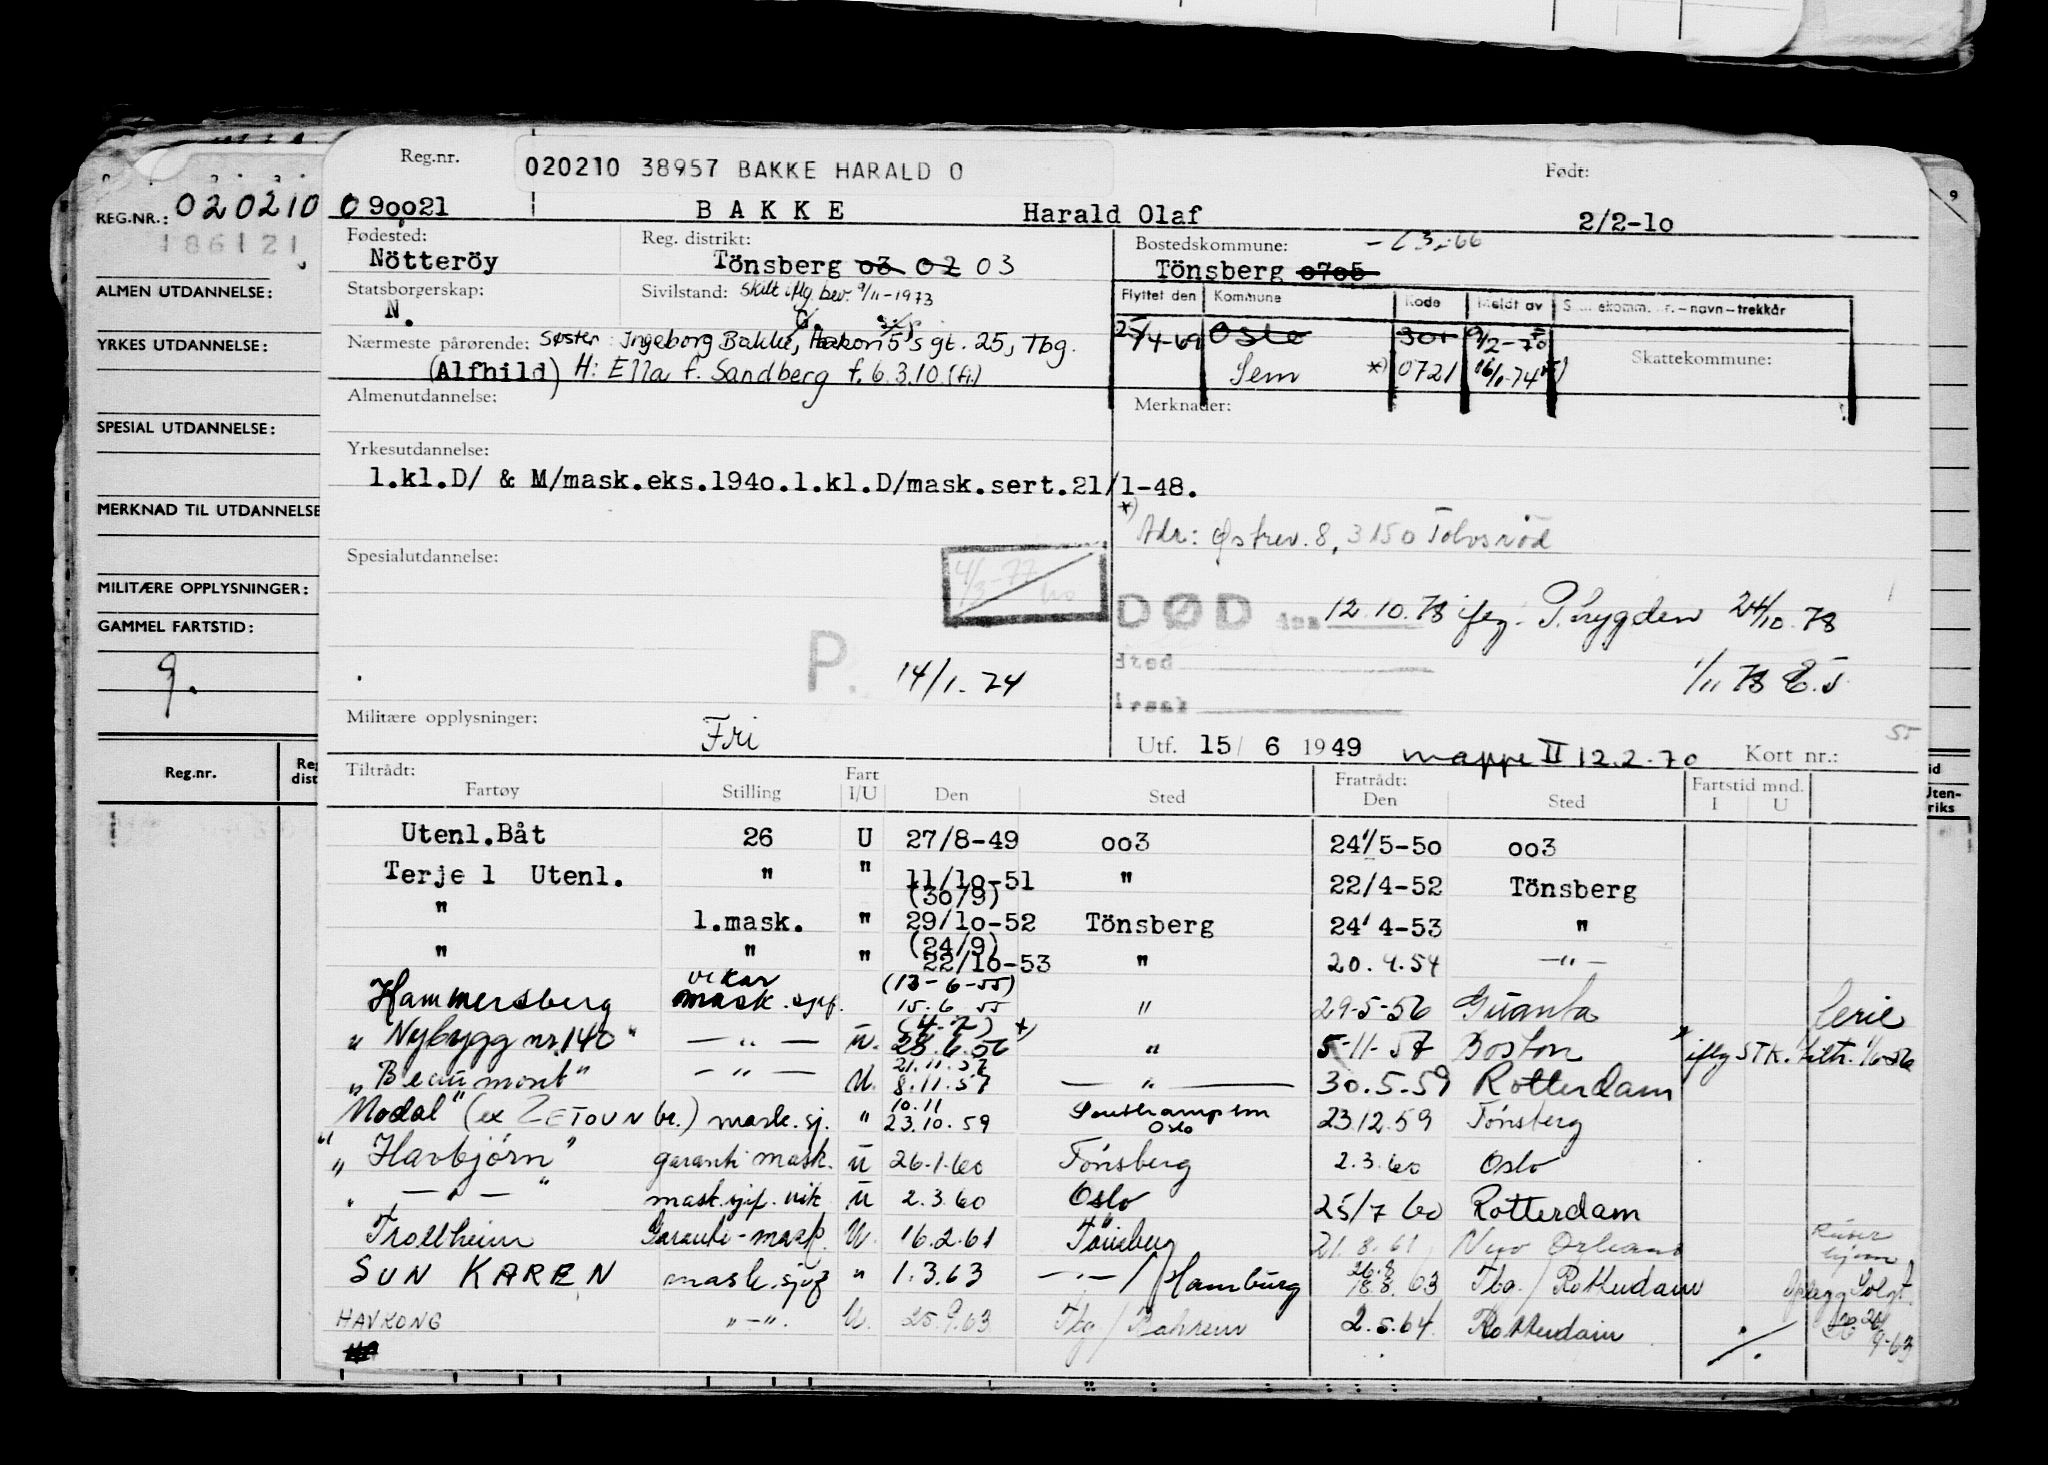 Reg.nr. 020210 38957 BAKKE HARALD O Født:
REG.NR.: 020210 090021 B A K K E Harald Olaf 2/2-10
186121
Fødested: Reg. distrikt: Bostedskommune: 66
Nötteröy Tönsberg 03 02 03 Tönsberg 0705
ALMEN UTDANNELSE: Statsborgerskap: Sivilstand: Skilt iflg bev. 9/11-1973 Flyttet den Kommune Kode Meldt av navn-trekkår
N. G.
YRKES UTDANNELSE: Nærmeste pårørende: Søster: Ingeborg Bakke, Håkon 5's gt. 25, Tbg. 25/4-69 Oslo 301 9/2-70 Skattekommune:
(Alfhild) H: Ella f. Sandberg f. 6.3.10 (fi.) Sem *) 0721 16/1-74
Almenutdannelse: Merknader:
SPESIAL UTDANNELSE:
Yrkesutdannelse:
1.kl.D/ & M/mask.eks.1940.1.kl.D/mask.sert.21/1-48.
MERKNAD TIL UTDANNELSE
*) Adr: Østrev. 8, 3150 Tolvsrød
Spesialutdannelse: 4/3-77
MILITÆRE OPPLYSNINGER:
DØD den 12.10.78 iføg. T.trygden 24/10.78
GAMMEL FARTSTID:
9. P. 14/1.74 Sted 1/11 78 E.J.
Årsak
Militære opplysninger: Fri
Utf. 15/ 6 1949 mappe II 12.2.70 Kort nr.:
Reg.nr. Tiltrådt: Fart Fratrådt: Fartstid mnd.
Fartøy Stilling I/U Den Sted Den Sted I U
Utenl.Båt 26 U 27/8-49 003 24/5-50 003
Terje 1 Utenl. " " 11/10-51 " 22/4-52 Tönsberg
(30/9)
" 1.mask. " 29/10-52 Tönsberg 24/4-53 "
(24/9)
" " " 22/10-53 " 20.4.54 -"-
Hammersberg vikar mask.sjef. (13-6-55) 15.6 55 " 29-5-56 Guanta ferie
" Nybygg nr. 140 " -"- u. (4-7) *) 28.6.56 " 5-11-57 Boston iflg STK. tiltr. 1/6-56
" Beaumont" -"- U. 21.11.57 8.11.57 -"- 30.5.59 Rotterdam
Modal" (ex ZETOUN br.) mask.sj. " 10.11 23.10.59 Southampton Oslo 23.12.59 Tönsberg
" Havbjörn" garanti mask. u 26.1.60 Tönsberg 2.3.60 Oslo
" -"- " mask.sjef. vik u 2.3.60 Oslo 25/7 60 Rotterdam
Trollheim Garanti-mask. U. 16.2.61 Tönsberg 21.8.61 New Orleans
SUN KAREN mask.sjef " 1.3.63 -"-/Hamburg 26.8 18.8.63 Tbg./Rotterdam Solgt.
HAVKONG "-". U. 25.9.63 Tbg/Bahrein 2.5.64 Rotterdam 9-63